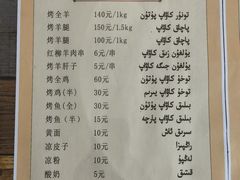 烤全羊 140元/1kg تونۇر كاۋاپ پۈتۈن
烤羊腿 150元/1.5kg پاچاق كاۋاپ
烤羊腿 100元/1kg پاچاق كاۋاپ
红柳羊肉串 6元/串 يۇلغۇن زىق كاۋاپ
烤羊肝子 5元/串 يۇلغۇن جىگەر كاۋاپ
烤全鸡 60元 توخۇ كاۋاپ پۈتۈن
烤鸡(半) 30元 توخۇ كاۋاپ يېرىم
烤鱼(全) 30元 بېلىق كاۋاپ پۈتۈن
烤鱼(半) 15元 بېلىق كاۋاپ پارچە
黄面 10元 سېرىق ئاش
凉皮子 10元 راڭپىزا
凉粉 10元 لەڭپۇڭ
酸奶 5元 قېتىق